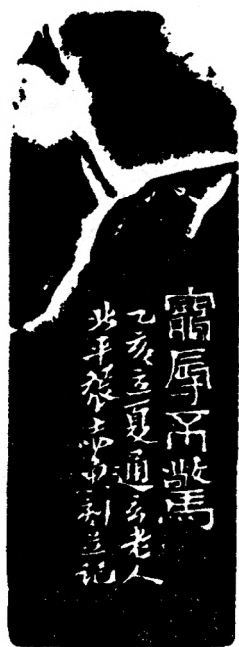 寵辱不驚
乙亥立夏通玄老人
北平張志魚刻並記